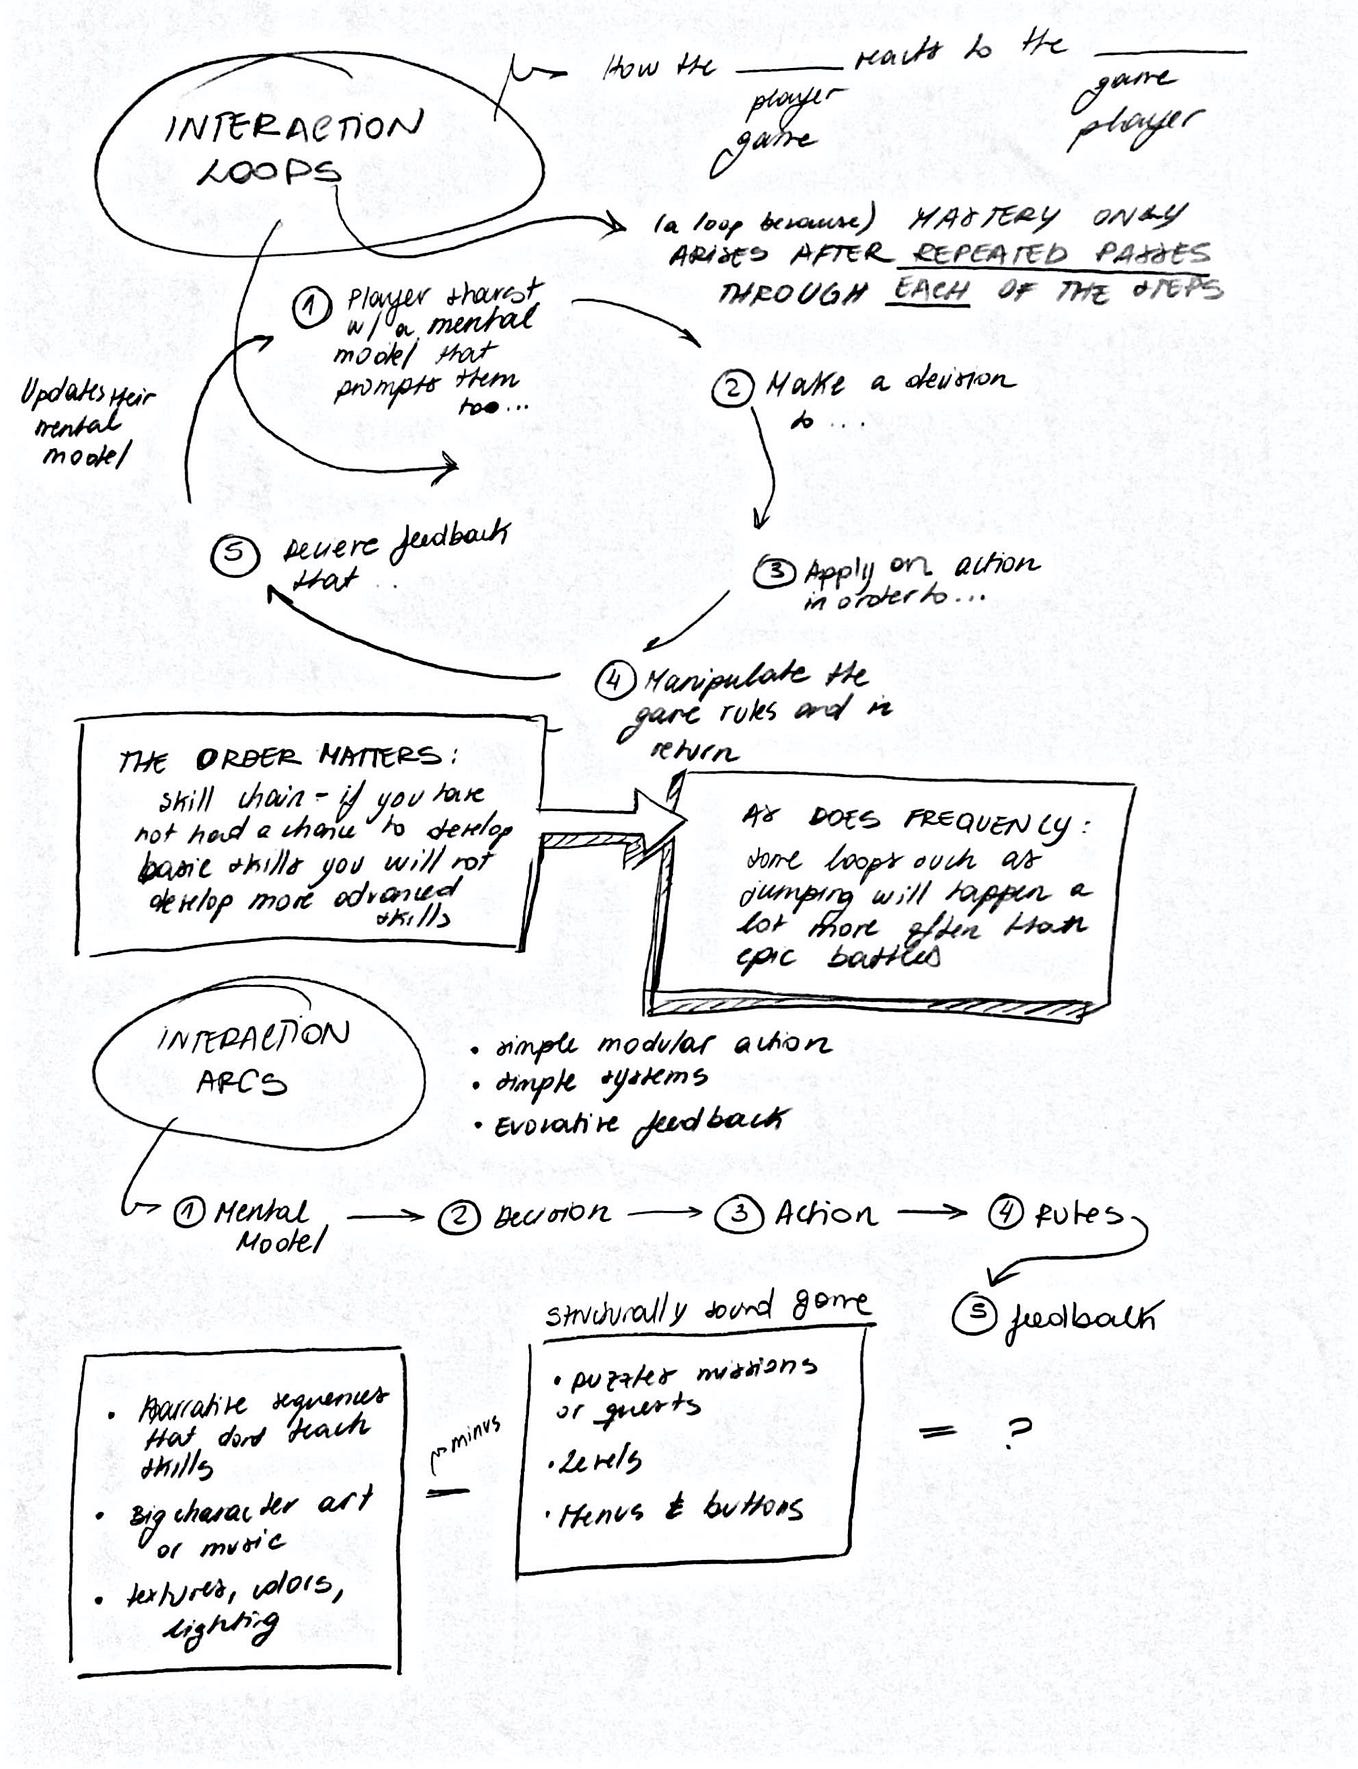 How the ______ reacts to the ______
player
game
game
player
INTERACTION
LOOPS
(a loop because) MASTERY ONLY
ARISES AFTER REPEATED PASSES
THROUGH EACH OF THE STEPS
1 Player
w/ a mental
model that
prompts them
too...
2 Make a decision
to ...
3 Apply an action
in order to...
4 Manipulate the
game rules and in
return
5 feedback
that ...
Updates their
mental
model
THE ORDER MATTERS:
skill chain - if you have
not had a chance to develop
basic skills you will not
develop more advanced
skills
AS DOES FREQUENCY:
some loops such as
jumping will happen a
lot more often than
epic battles
INTERACTION
ARCS
• simple modular action
• simple systems
• Evocative feedback
1 Mental
Model
2 Decision
3 Action
4 Rules
5 feedback
• Narrative sequences
that dont teach
skills
• Big character art
or music
• textures, colors,
lighting
minus
–
structurally sound game
• puzzles missions
or quests
• Levels
• Menus & buttons
= ?